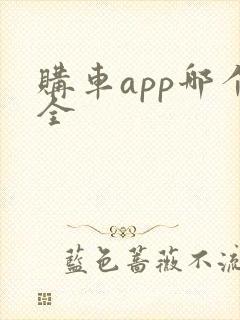 購車app哪个
全
藍色薔薇不流